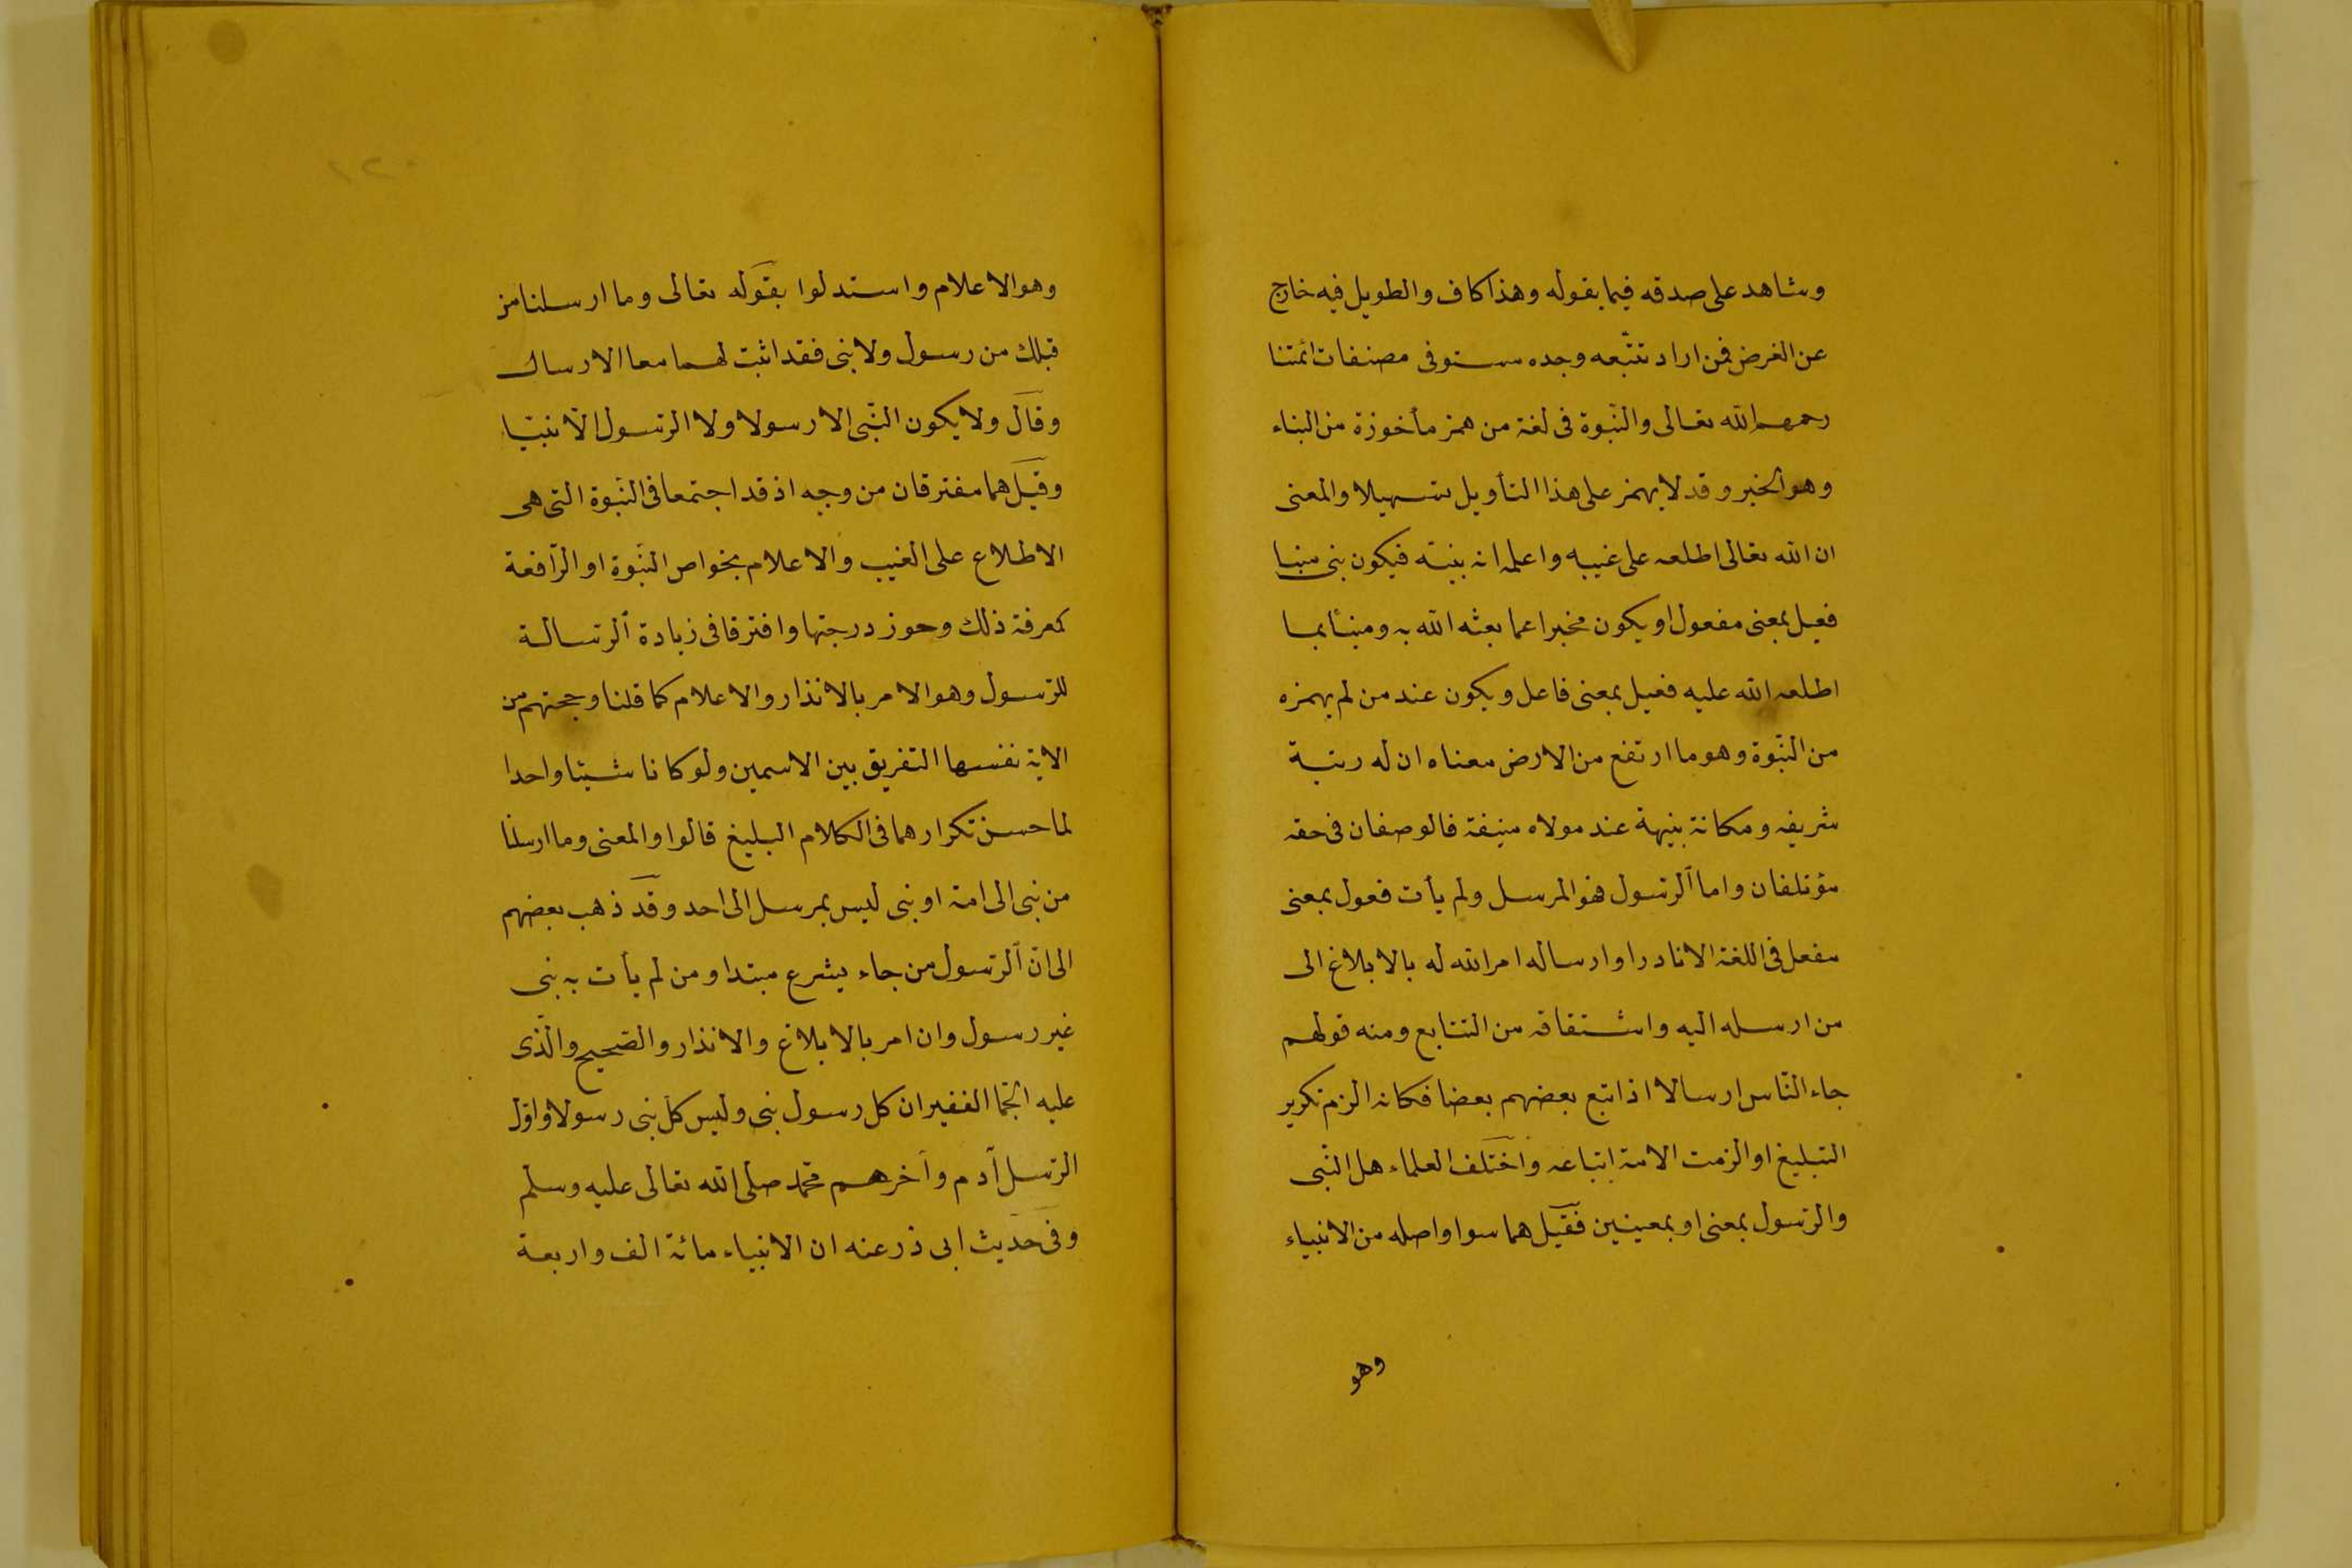 وشاهد على صدقه فيما يقوله وهذا كاف والطويل فيه خارج
عن الغرض فمن اراد تتبّعه وجده مستوفى مصنفات ائمتنا
رحمهم الله تعالى والنّبوة فى لغة من همز مأخوزة من النباء
وهو الخبر وقد لا يهمز على هذا التأويل تسهيلا والمعنى
ان الله تعالى اطلعه على غيبه واعلمه انه نبيّه فيكون نبى منبا
فعيل بمعنى مفعول او يكون مخبرا عما بعثه الله به ومنبئا بما
اطلعه الله عليه فعيل بمعنى فاعل ويكون عند من لم يهمزه
من النّبوة وهو ما ارتفع من الارض معناه ان له رتبة
شريفه ومكانة نبيهة عند مولاه منيفة فالوصفان فى حقه
مؤتلفان واما الرّسول فهو المرسل ولم يأت فعول بمعنى
مفعل فى اللغة الا نادرا وارساله امر الله له بالابلاغ الى
من ارسله اليه واشتقاقه من التتابع ومنه قولهم
جاء النّاس ارسالا اذا تبع بعضهم بعضا فكانه الزم تكرير
التبليغ او الزمت الامة اتباعه واختلف العلماء هل النّبى
والرّسول بمعنى او بمعنيين فقيل هما سوا واصله من الانبياء
وهو
وهو الاعلام واستدلوا بقوله تعالى وما ارسلنا من
قبلك من رسول ولا نبى فقد اثبت لهما معا الارسال
وقال ولا يكون النّبى الا رسولا ولا الرّسول الّا نبيّا
وقيل هما مفترقان من وجه اذ قد اجتمعا فى النّبوة التى هى
الاطلاع على الغيب والاعلام بخواص النّبوة او الرّافعة
لمعرفة ذلك وحوز درجتها وافترقا فى زيادة الرّسالة
للرّسول وهو الامر بالانذار والاعلام كما قلنا وحجتهم من
الاية نفسها التفريق بين الاسمين ولو كانا شيئا واحدا
لما حسن تكرارهما فى الكلام البليغ قالوا والمعنى وما ارسلنا
من نبى الى امة او نبى ليس بمرسل الى احد وقد ذهب بعضهم
الى انّ الرّسول من جاء بشرع مبتدا ومن لم يأت به نبى
غير رسول وان امر بالابلاغ والانذار والصّحيح والّذى
عليه الجّما الغفير ان كل رسول نبى وليس كل نبى رسولا واوّل
الرّسل آدم وآخرهم محمّد صلى الله تعالى عليه وسلّم
وفى حديث ابى ذر عنه ان الانبياء مائة الف واربعة